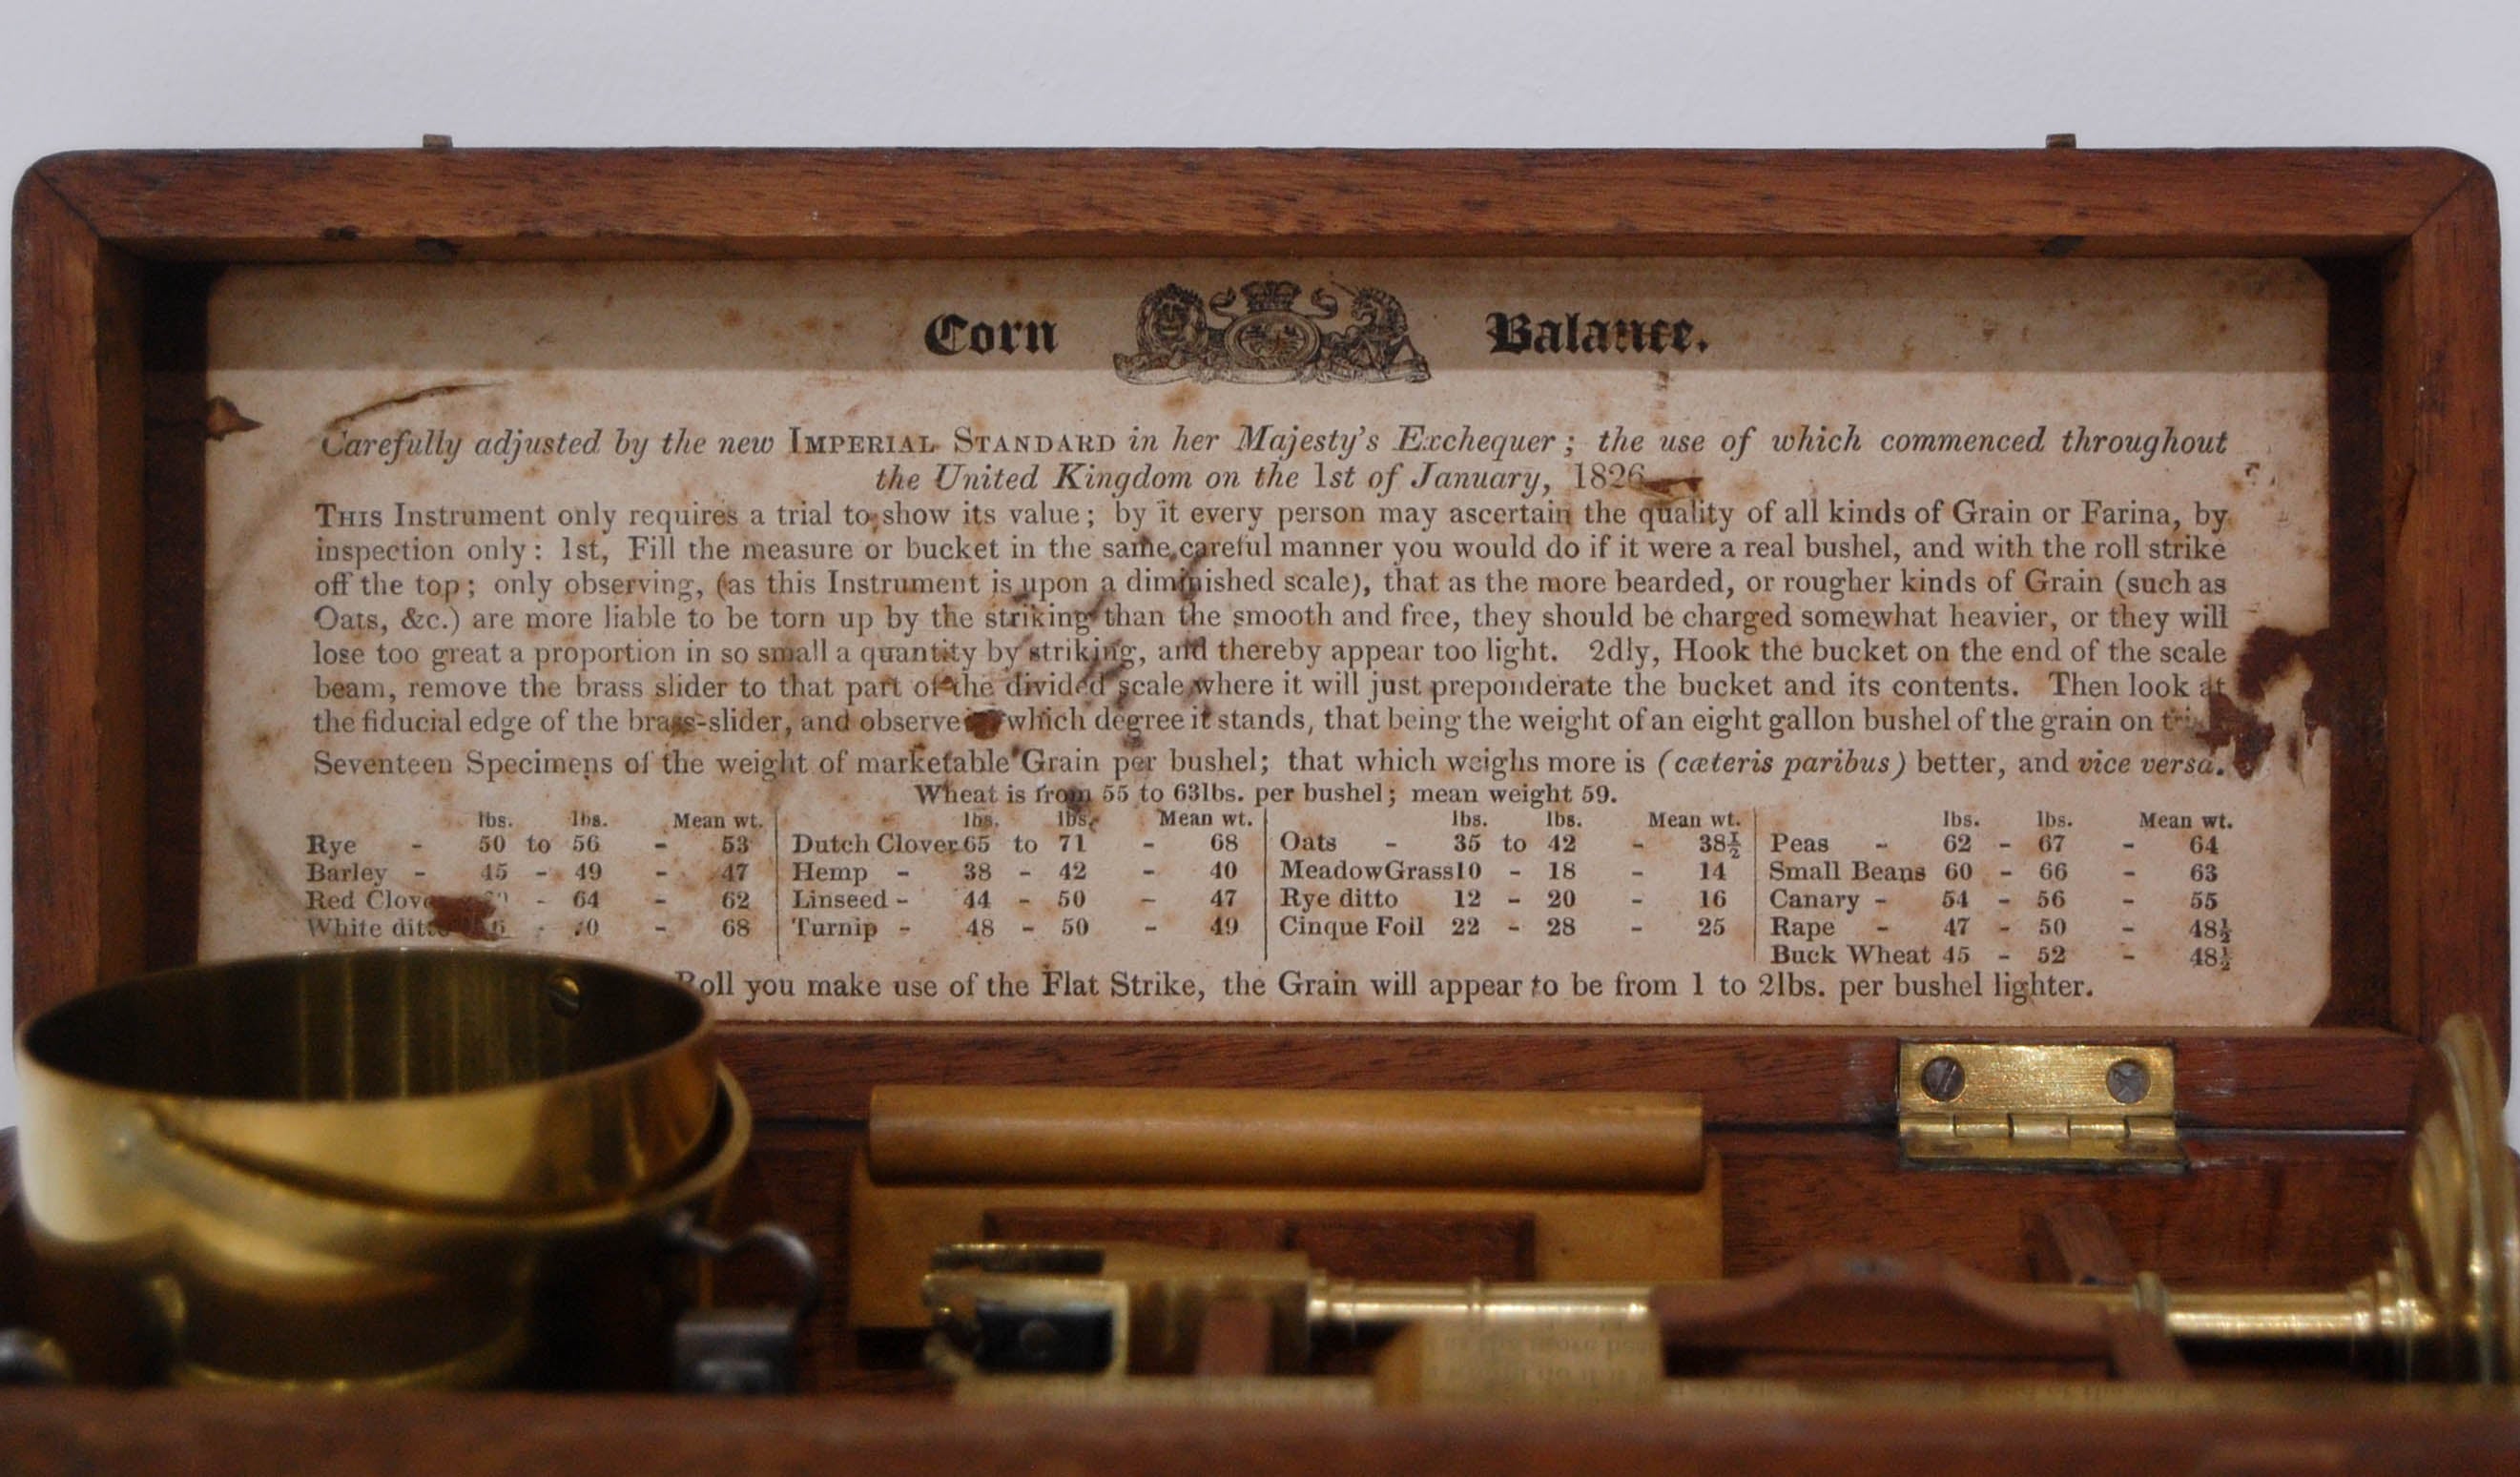 Corn Balance.
Carefully adjusted by the new IMPERIAL STANDARD in her Majesty's Exchequer; the use of which commenced throughout
the United Kingdom on the 1st of January, 1826
THIS Instrument only requires a trial to show its value; by it every person may ascertain the quality of all kinds of Grain or Farina, by
inspection only: 1st, Fill the measure or bucket in the same careful manner you would do if it were a real bushel, and with the roll strike
off the top; only observing, (as this Instrument is upon a diminished scale), that as the more bearded, or rougher kinds of Grain (such as
Oats, &c.) are more liable to be torn up by the striking than the smooth and free, they should be charged somewhat heavier, or they will
lose too great a proportion in so small a quantity by striking, and thereby appear too light. 2dly, Hook the bucket on the end of the scale
beam, remove the brass slider to that part of the divided scale where it will just preponderate the bucket and its contents. Then look at
the fiducial edge of the brass-slider, and observe which degree it stands, that being the weight of an eight gallon bushel of the grain on
Seventeen Specimens of the weight of marketable Grain per bushel; that which weighs more is (cæteris paribus) better, and vice versa.
Wheat is from 55 to 63lbs. per bushel; mean weight 59.
lbs. lbs. Mean wt. lbs. lbs. Mean wt. lbs. lbs. Mean wt. lbs. lbs. Mean wt.
Rye - 50 to 56 - 53 Dutch Clover 65 to 71 - 68 Oats - 35 to 42 - 38½ Peas - 62 - 67 - 64
Barley - 45 - 49 - 47 Hemp - 38 - 42 - 40 Meadow Grass 10 - 18 - 14 Small Beans 60 - 66 - 63
Red - 64 - 62 Linseed - 44 - 50 - 47 Rye ditto 12 - 20 - 16 Canary - 54 - 56 - 55
White - 68 Turnip - 48 - 50 - 49 Cinque Foil 22 - 28 - 25 Rape - 47 - 50 - 48½
Buck Wheat 45 - 52 - 48½
Roll you make use of the Flat Strike, the Grain will appear to be from 1 to 2lbs. per bushel lighter.